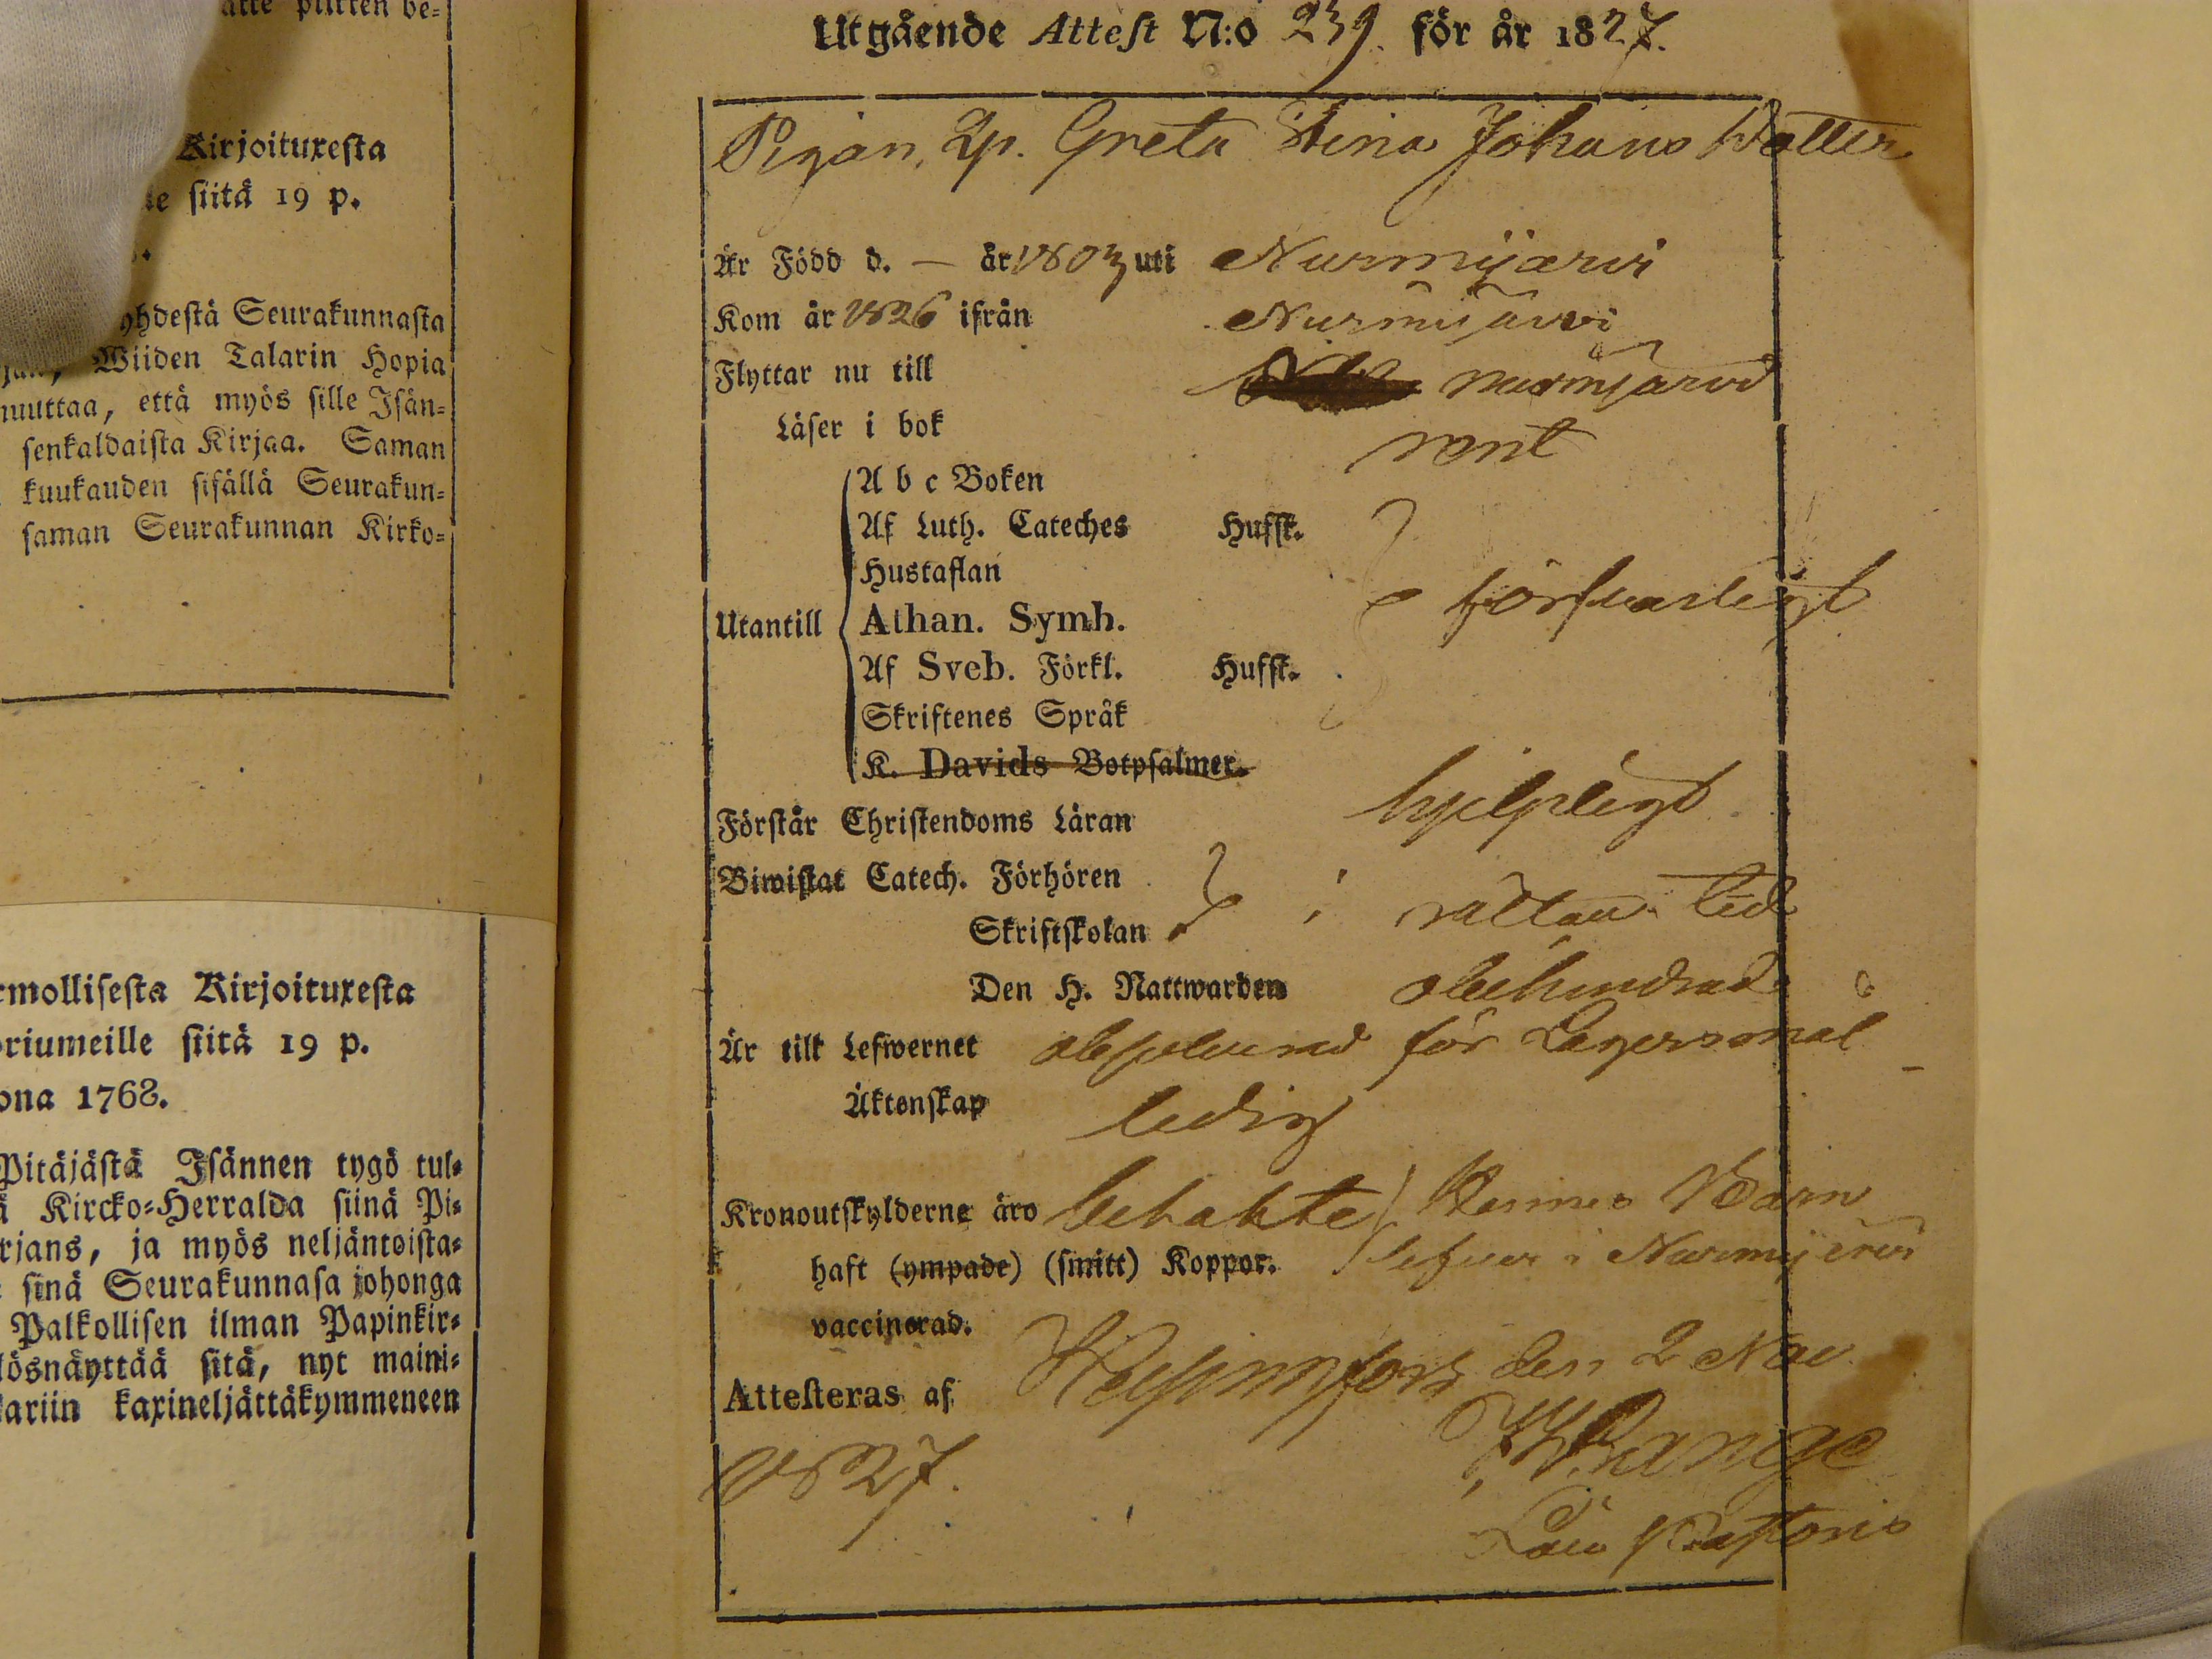 atte plitten be=
Kirjoituxesta
siitä 19 p.
yhdestä Seurakunnasta
Wiiden Talarin Hopia
muuttaa, että myös sille Isän=
senkaldaista Kirjaa. Saman
kuukauden sisällä Seurakun=
saman Seurakunnan Kirko=
rmollisesta Kirjoituxesta
riumeille siitä 19 p.
ona 1768.
Pitäjästä Isännen tygö tul=
ä Kircko=Herralda siinä Pi=
rjans, ja myös neljäntoista=
sinä Seurakunnasa johonga
Palkollisen ilman Papinkir=
lösnäyttää sitä, nyt maini=
lariin kaxineljättäkymmeneen
Utgående Attest N:o 239. för år 1827.
Pigan, Qp. Greta Stina Johans Dotter
Är Född d. — år 1803 uti Nurmijärvi
Kom år 1826 ifrån Nurmijärvi
Flyttar nu till Nurmijärvi
Läser i bok rent
A b c Boken
Af Luth. Cateches Hufst.
Hustaflan
Utantill Athan. Symb. försvarligt
Af Sveb. Förkl. Hufst.
Skriftenes Språk
K. Davids Botpsalmer.
Förstår Christendoms Läran hjelpligt.
Biwistat Catech. Förhören
Skriftskolan i rättan tid
Den H. Nattwarden obehindrad
Är till Lefwernet absolverad för Lägersmål
Äktenskap ledig
Kronoutskylderne äro betalte Hennes Barn
haft (ympade) (smitt) Koppor. lefver i Nurmijärvi
vaccinerad.
Attesteras af Helsingfors den 2 Nov.
1827. Range
Pastoris